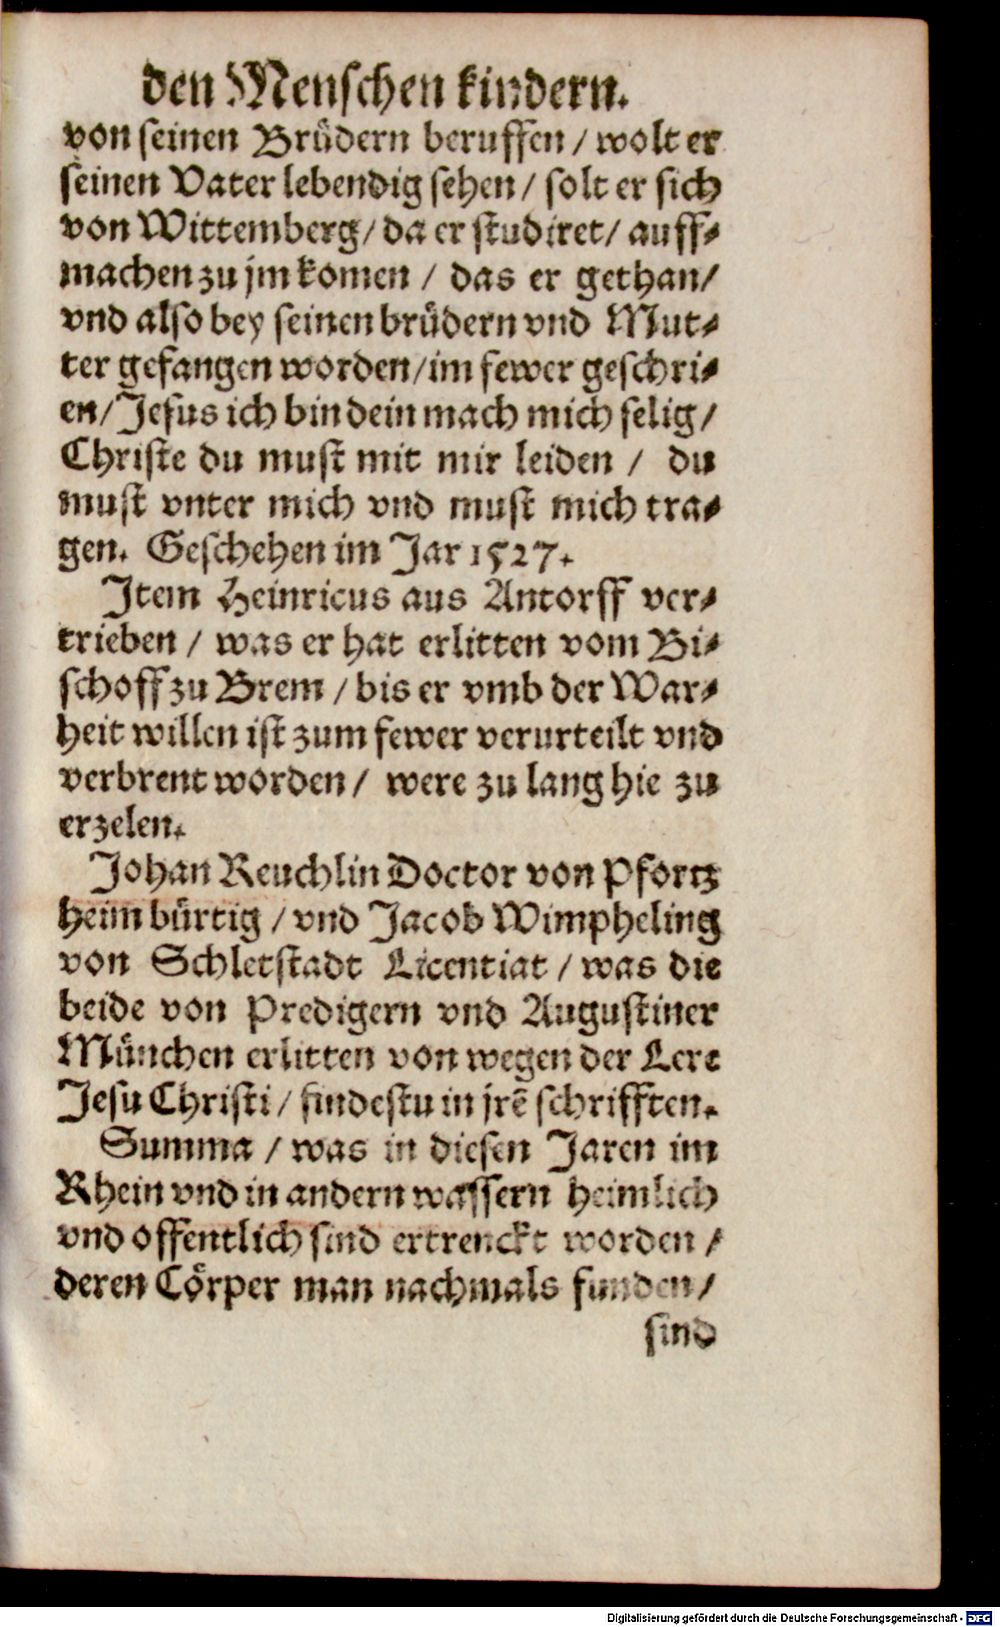 den Menschen kindern.
von seinen Brüdern beruffen / wolt er
seinen Vater lebendig sehen / solt er sich
von Wittemberg / da er studiret / auff⸗
machen zu jm komen / das er gethan /
vnd also bey seinen brüdern vnd Mut⸗
ter gefangen worden / im fewer geschri⸗
en / Jesus ich bin dein mach mich selig /
Christe du must mit mir leiden / du
must vnter mich vnd must mich tra⸗
gen. Geschehen im Jar 1527.
Jtem Heinricus aus Antorff ver⸗
trieben / was er hat erlitten vom Bi⸗
schoff zu Brem / bis er vmb der War⸗
heit willen ist zum fewer verurteilt vnd
verbrent worden / were zu lang hie zu
erzelen.
Johan Reuchlin Doctor von Pfortz
heim bürtig / vnd Jacob Wimpheling
von Schletstadt Licentiat / was die
beide von Predigern vnd Augustiner
München erlitten von wegen der Lere
Jesu Christi / findestu in jrē schrifften.
Summa / was in diesen Jaren im
Rhein vnd in andern wassern heimlich
vnd offentlich sind ertrenckt worden /
deren Cörper man nachmals funden /
sind
Digitalisierung gefördert durch die Deutsche Forschungsgemeinschaft - DFG